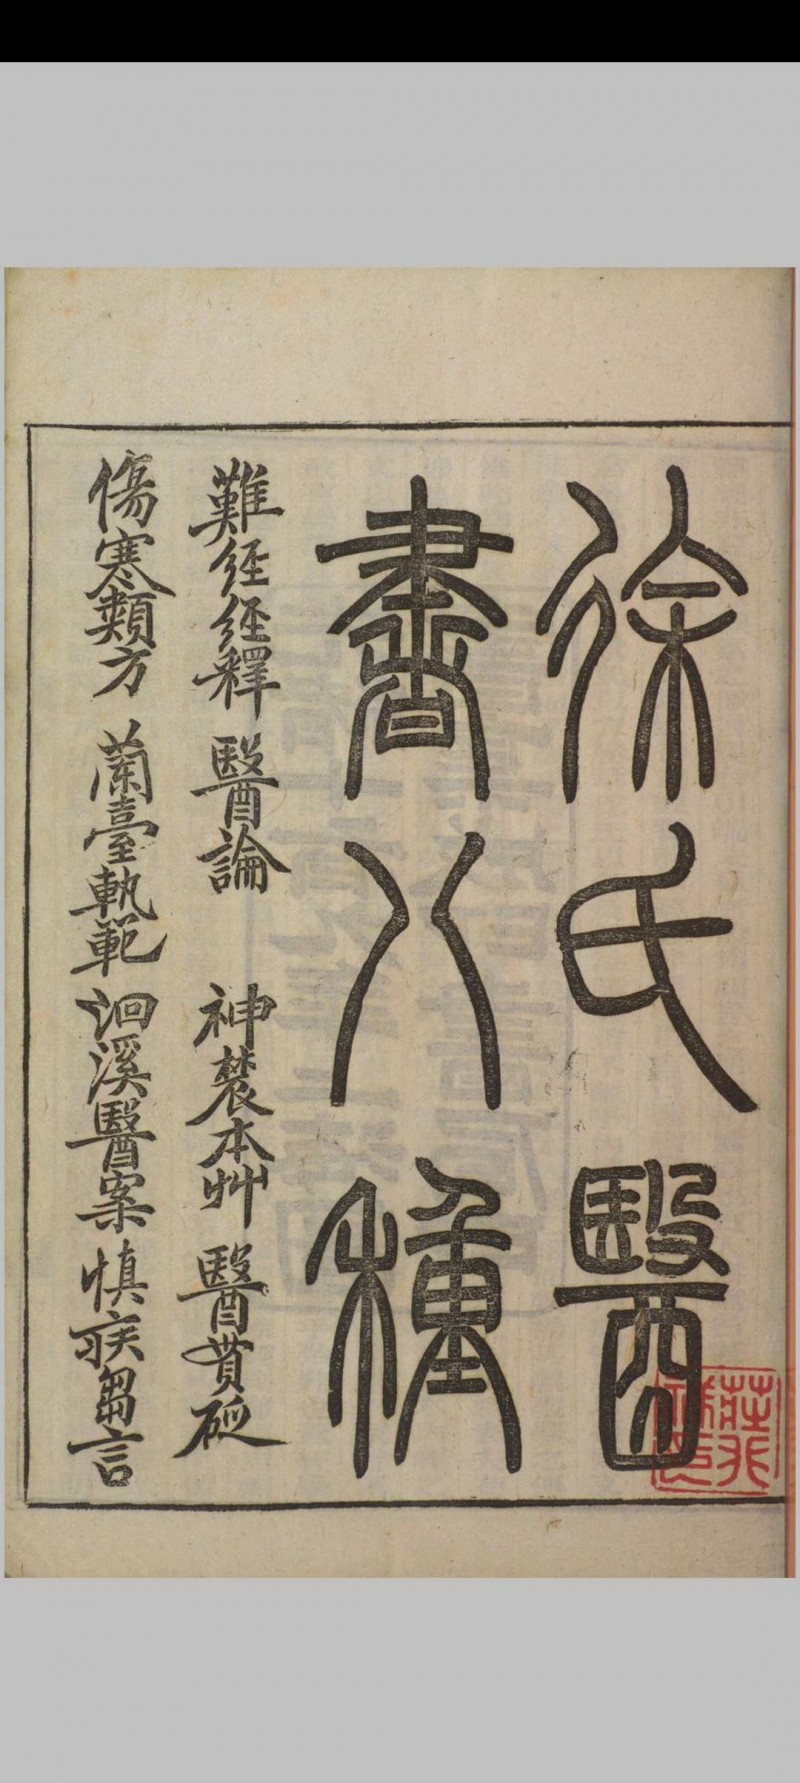 徐氏醫
書八種
難經經釋 醫論 神農本艸 醫貫砭
傷寒類方 蘭臺軌範 洄溪醫案 慎疾芻言